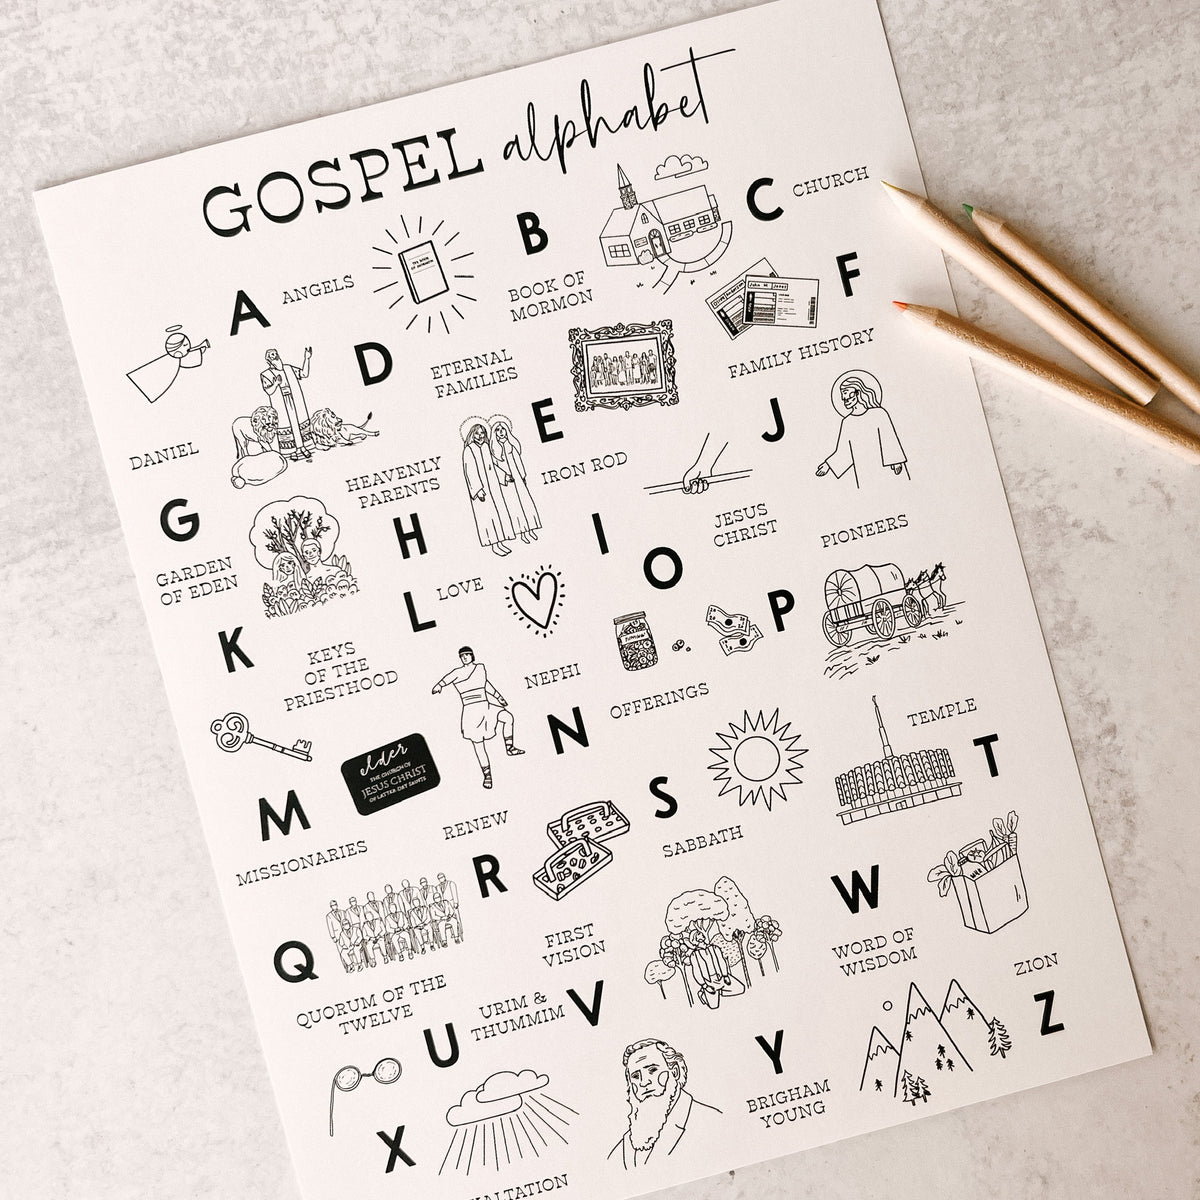 GOSPEL alphabet
A
ANGELS
THE BOOK
OF MORMON
B
BOOK OF
MORMON
C
CHURCH
DANIEL
D
ETERNAL
FAMILIES
E
F
FAMILY HISTORY
G
GARDEN
OF EDEN
HEAVENLY
PARENTS
H
IRON ROD
I
J
JESUS
CHRIST
K
KEYS
OF THE
PRIESTHOOD
L
LOVE
M
elder
THE CHURCH OF
JESUS CHRIST
OF LATTER-DAY SAINTS
MISSIONARIES
NEPHI
N
O
OFFERINGS
P
PIONEERS
Q
QUORUM OF THE
TWELVE
RENEW
R
S
SABBATH
TEMPLE
T
U
URIM &
THUMMIM
FIRST
VISION
V
W
WORD OF
WISDOM
X
Y
BRIGHAM
YOUNG
ZION
Z